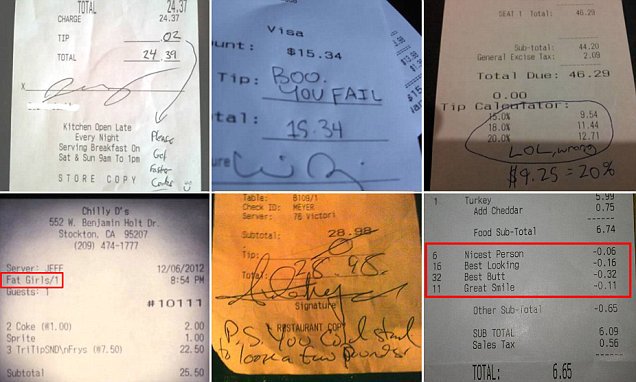 TOTAL 24.37
CHARGE 24.37
TIP .02
TOTAL 24.39
X
Kitchen Open Late
Every Night
Serving Breakfast On
Sat & Sun 9am To 1pm
STORE COPY
Please
Get
Faster
Visa
unt: $15.34
Tip: BOO.
YOU FAIL
tal: 15.34
ure
SEAT 1 Total: 46.29
Sub-total: 44.20
General Excise Tax: 2.09
Total Due: 46.29
0.00
Tip Calculator:
15.0% 9.54
18.0% 11.44
20.0% 12.71
LOL, wrong
$9.25 = 20%
Chilly D's
552 W. Benjamin Holt Dr.
Stockton, CA 95207
(209) 474-1777
Server: JEFF 12/06/2012
Fat Girls/1 8:54 PM
Guests: 1
#10111
2 Coke (#1.00) 2.00
Sprite 1.00
3 TriTipSND\nFrys (#7.50) 22.50
Subtotal 25.50
Table: B109/1
Check ID: MEYER
Server: 76 Victori
Subtotal: 28.98
Tip:
Total: 28.98
Signature
RESTAURANT COPY
P.S. You could stand
to loose a few pounds
1 Turkey 5.99
Add Cheddar 0.75
Food Sub-Total 6.74
6 Nicest Person -0.06
16 Best Looking -0.16
32 Best Butt -0.32
11 Great Smile -0.11
Other Sub-Total -0.65
SUB TOTAL 6.09
Sales Tax 0.56
TOTAL: 6.65